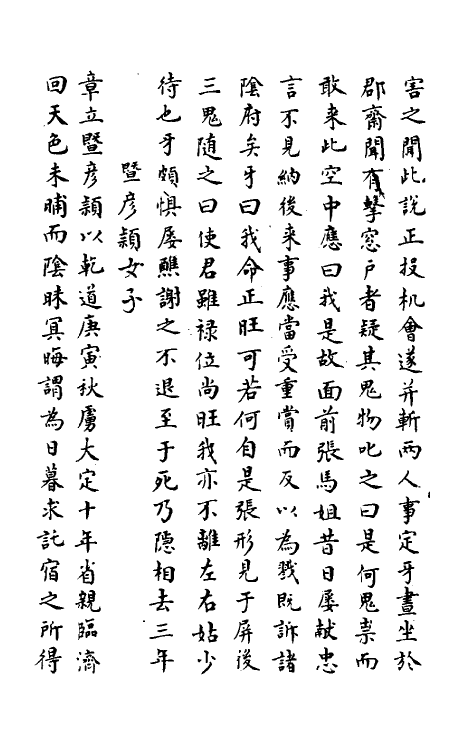 害之聞此說正投机會遂并斬兩人事定牙晝坐於
郡齋聞有擊窓戶者疑其鬼物叱之曰是何鬼祟而
敢来此空中應曰我是故面前張馬姐昔日屡献忠
言不見納後来事應當受重賞而反以為戮既訴諸
陰府矣牙曰我命正旺可若何自是張形見于屏後
三鬼随之曰使君雖禄位尚旺我亦不離左右姑少
待也牙頗惧屡醮謝之不退至于死乃隠相去三年
暨彦穎女子
章立暨彦穎以乾道庚寅秋虜大定十年省親臨濟
回天色未晡而陰昧冥晦謂為日暮求託宿之所得